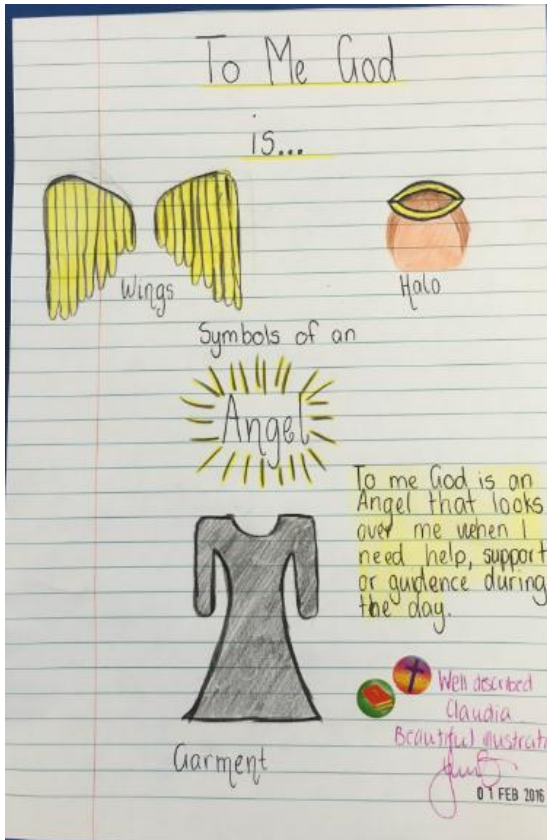 To Me God
is...
Wings
Halo
Symbols of an
Angel
To me God is an
Angel that looks
over me when I
need help, support
or guidence during
the day.
Garment
Well described
Claudia
Beautiful illustrati
01 FEB 2016